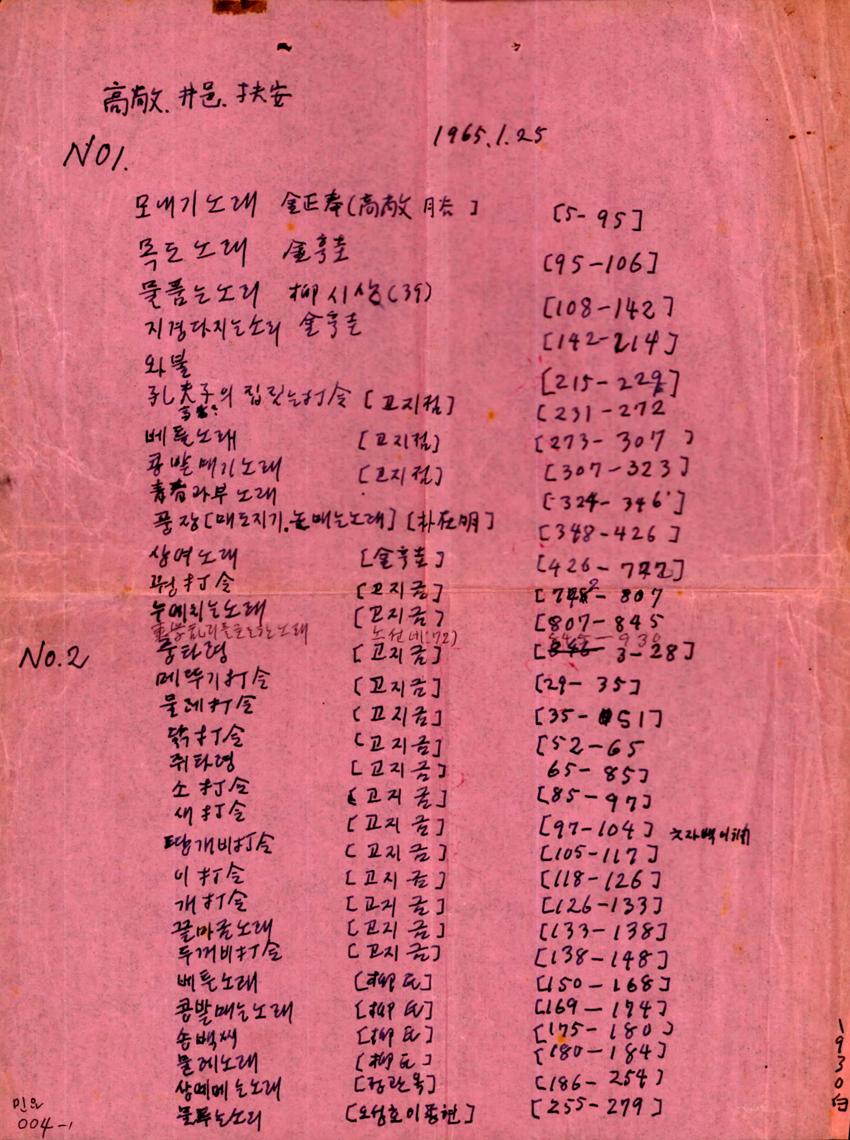 高敞. 井邑. 扶安
1965.1.25
NO1.
모내기노래 金正奉(高敞 ] [5-95]
목도노래 金亨圭 [95-106]
물품는노래 柳시상(39) [108-142]
지경다지는소리 金亨圭 [142-214]
와불 [215-229]
孔夫子의 집짓는打令 [고지점] [231-272
베틀노래 [고지점] [273-307]
콩밭매기노래 [고지점] [307-323]
靑春과부노래 [324-346]
풍장[매도지기.논매는노래] [朴在明] [348-426]
상여노래 [金亨圭] [426-742]
꿩打令 [고지금] [742-807
누에치는노래 [고지금] [807-845
노래 노선네(72) 845-930
No.2
중타령 [고지금] [3-28]
메뚜기打令 [고지금] [29-35]
물레打令 [고지금] [35-51]
닭打令 [고지금] [52-65
쥐타령 [고지금] 65-85]
소打令 [고지금] [85-97]
새打令 [고지금] [97-104]
땅개비打令 [고지금] [105-117]
이打令 [고지금] [118-126]
개打令 [고지금] [126-133]
끌마금노래 [고지금] [133-138]
두꺼비打令 [고지금] [138-148]
베틀노래 [柳氏] [150-168]
콩밭매는노래 [柳氏] [169-174]
송백씨 [柳氏] [175-180]
물레노래 [柳氏] [180-184]
상메메는노래 [정관옥] [186-254]
물푸는노래 [오성호이종현] [255-279]
민요
004-1
1930